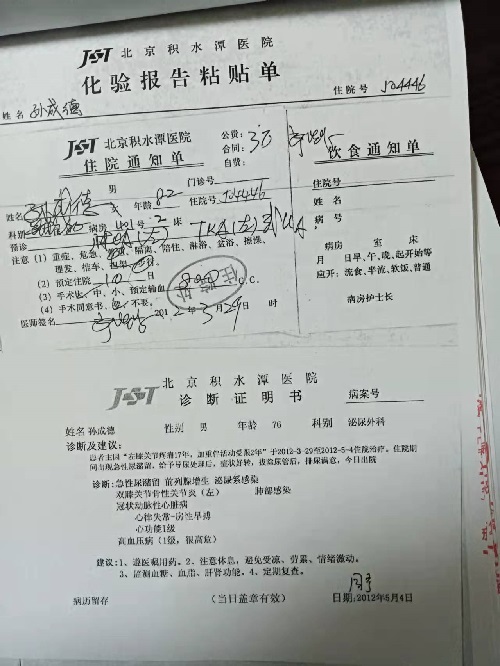 JST 北京积水潭医院
化验报告粘贴单
姓名 孙成德 住院号 504446
JST 北京积水潭医院
住院通知单
公费:
合同:
自费:
30
男
姓名 孙成德 年龄 82 门诊号
科别 病房 401 号 2 床 住院号 504446
预诊 (左) TKA(左)
注意 (1) 重症、危急、隔离、陪住、淋浴、盆浴、擦澡、
理发、结车、
(2) 预定住院 10 日
(3) 手术 中、小、预定输血 800 C.C.
(4) 手术同意书、不要。
医师签名 2012年3月29日 时
饮食通知单
住院号
姓名
病号
病房 室 床
月 日早、午、晚、起开始等
应开: 流食、半流、软饭、普通
病房护士长
JST 北京积水潭医院
诊断证明书 病案号
姓名 孙成德 性别 男 年龄 76 科别 泌尿外科
诊断及建议:
患者主因“左膝关节疼痛17年,加重伴活动受限2年”于2012-3-29至2012-5-4住院治疗。住院期
间出现急性尿潴留,给予导尿处理后,症状好转,拔除尿管后,排尿满意,今日出院
诊断:急性尿潴留 前列腺增生 泌尿系感染
双膝关节骨性关节炎(左) 肺部感染
冠状动脉性心脏病
心律失常-房性早搏
心功能1级
高血压病(1级,很高危)
建议:1、遵医嘱用药。2、注意休息,避免受凉、劳累、情绪激动。
3、监测血糖、血脂、肝肾功能。4、定期复查。
病历留存 (当日盖章有效) 日期:2012年5月4日